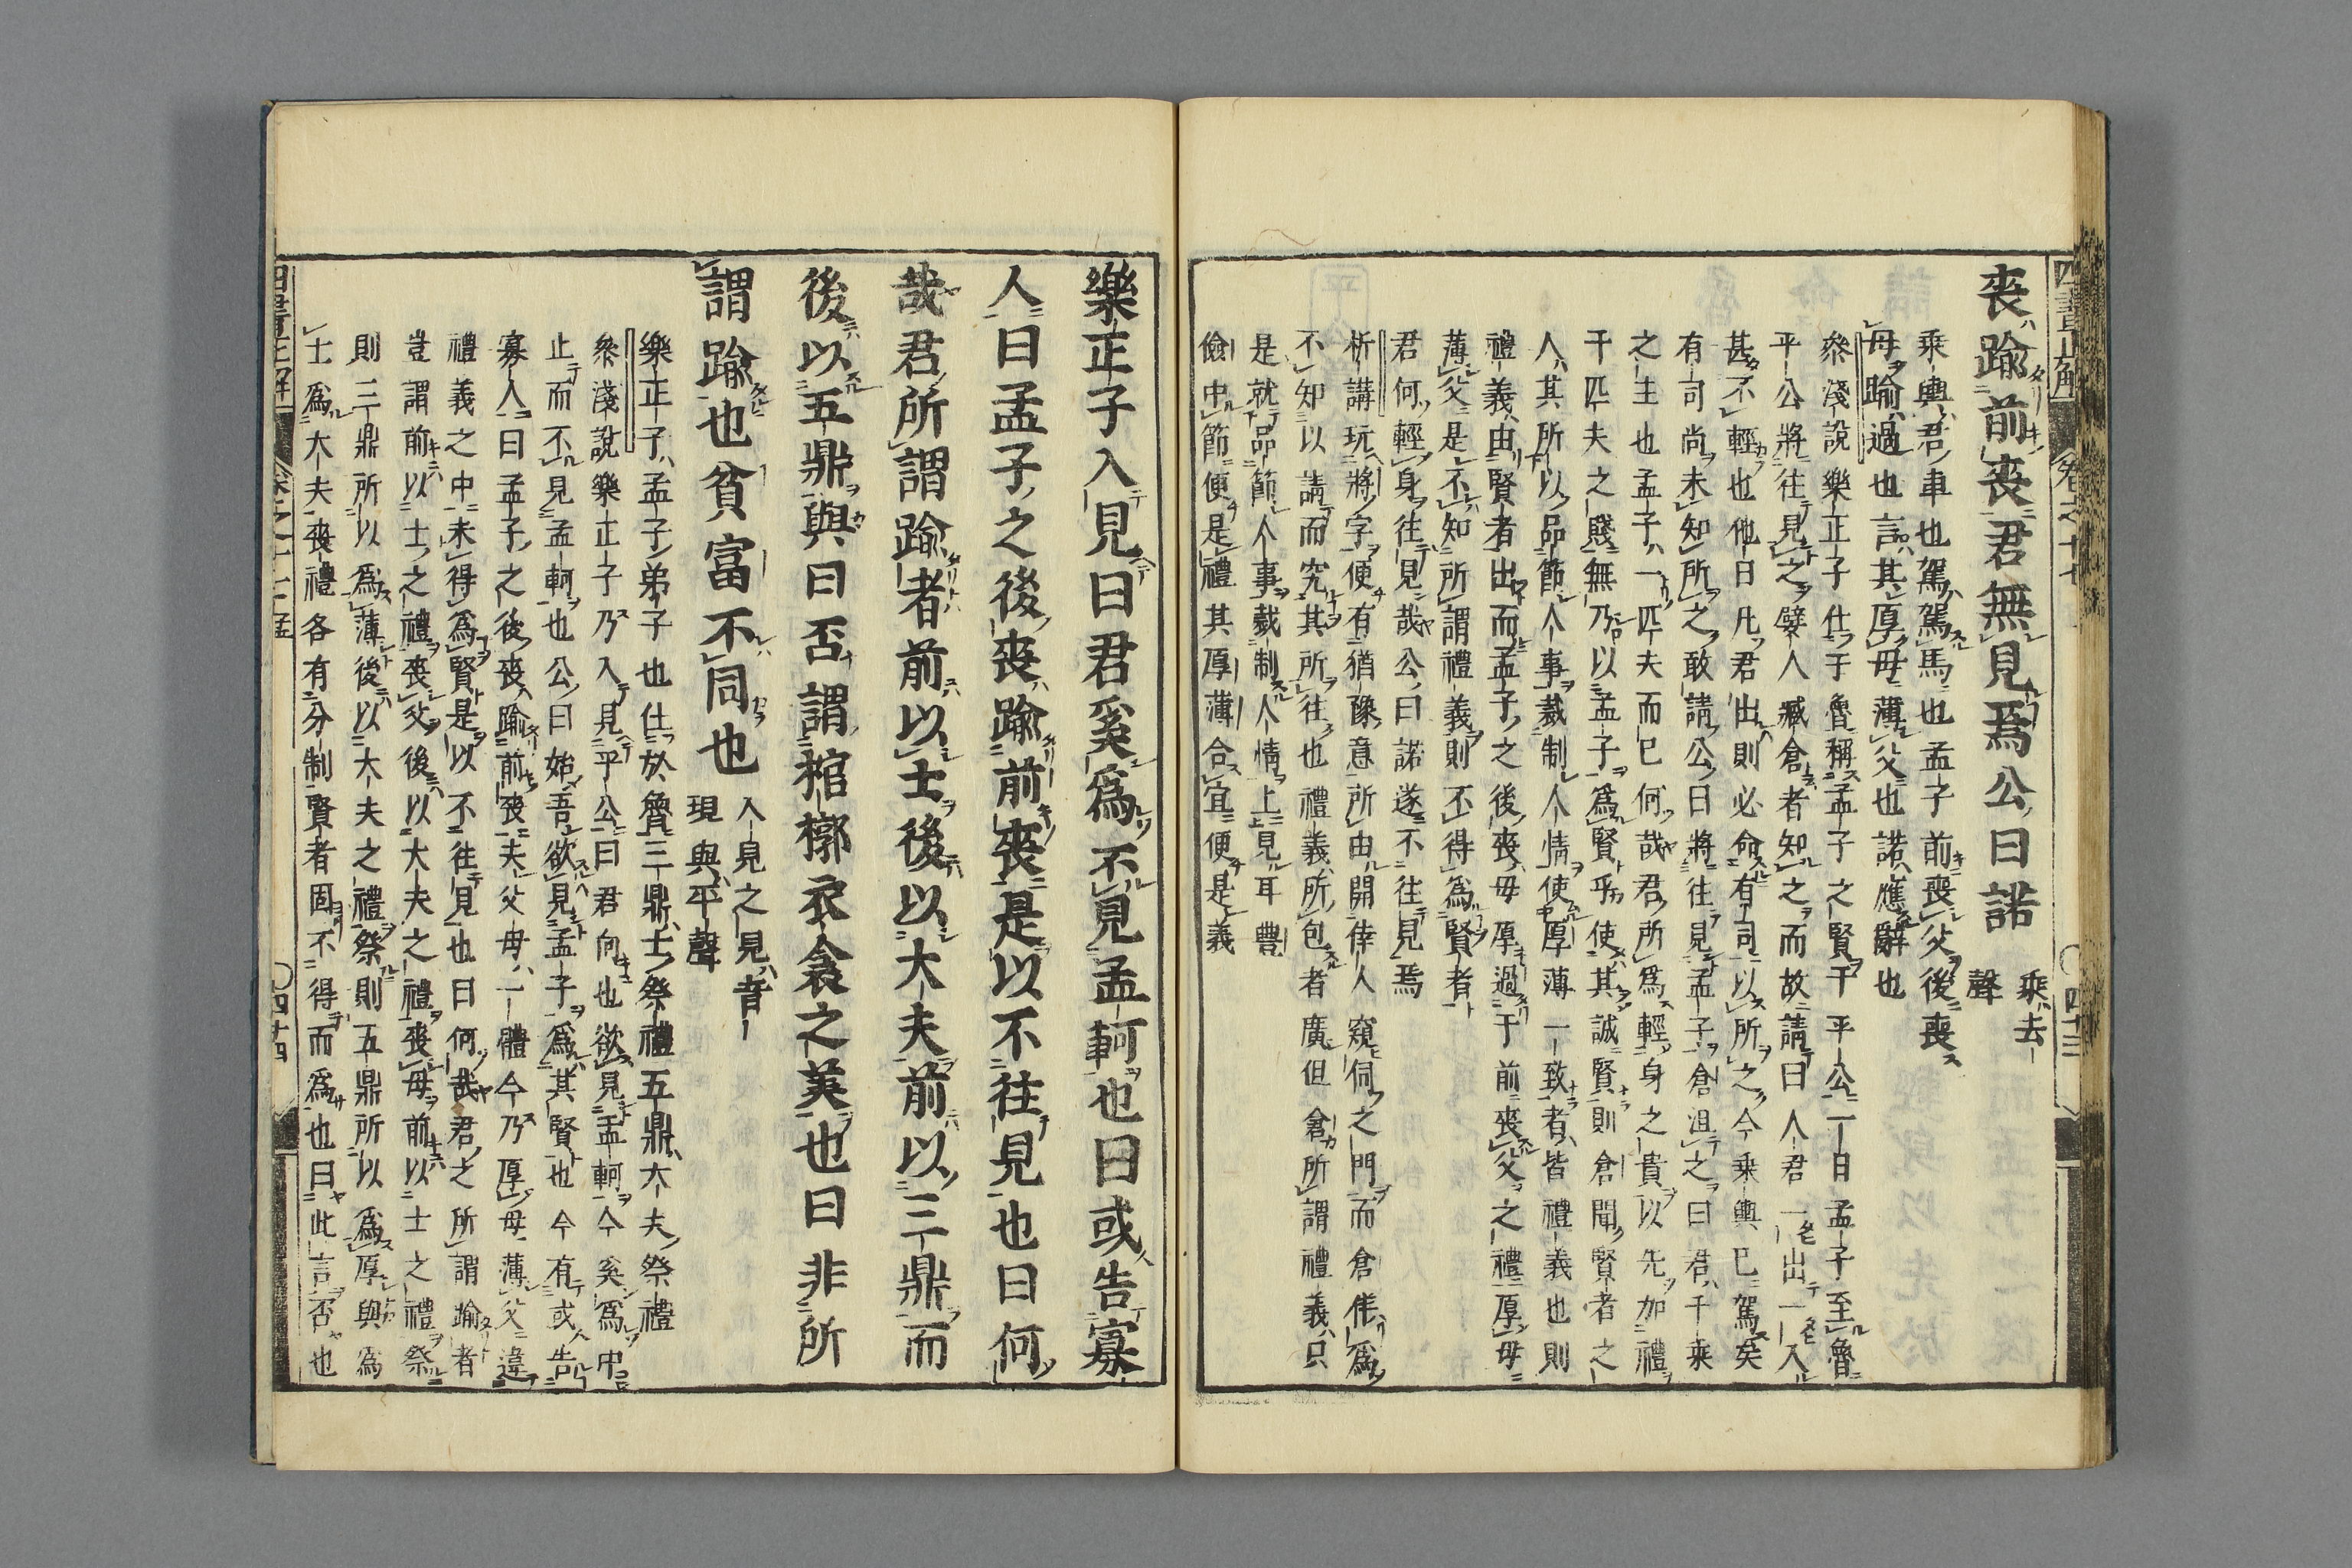 四書正解
卷之十七
四十三
喪踰前喪君無見焉公曰諾
乘去
聲
乘輿君車也駕駕馬也孟子前喪父後喪
母踰過也言其厚母薄父也諾應辭也
叅淺說樂正子仕于魯稱孟子之賢于平公一日孟子至魯
平公將往見之嬖人臧倉者知之而故請曰人君一出一入
甚不輕也他日凡君出則必命有司以所之今乘輿已駕矣
有司尚未知所之敢請公曰將往見孟子倉沮之曰君千乘
之主也孟子一匹夫而已何哉君所爲輕身之貴以先加禮
于匹夫之賤無乃以孟子爲賢乎使其誠賢則倉聞賢者之
人其所以品節人事裁制人情使厚薄一致者皆禮義也則
禮義由賢者出而孟子之後喪母厚過于前喪父之禮厚母
薄父是不知所謂禮義則不得爲賢者
君何輕身往見哉公曰諾遂不往見焉
析講玩將字便有猶豫意所由開倖人窺伺之門而倉佯爲
不知以請而究其所往也禮義所包者廣但倉所謂禮義只
是就品節人事裁制人情上見耳豐
儉中節便是禮其厚薄合宜便是義
樂正子入見曰君奚爲不見孟軻也曰或告寡
人曰孟子之後喪踰前喪是以不往見也曰何
哉君所謂踰者前以士後以大夫前以三鼎而
後以五鼎與曰否謂棺槨衣衾之美也曰非所
謂踰也貧富不同也
入見之見音
現與平聲
樂正子孟子弟子也仕於魯三鼎士祭禮五鼎大夫祭禮
叅淺說樂正子乃入見平公曰君向也欲見孟軻今奚爲中
止而不見孟軻也公曰始吾欲見孟子爲其賢也今有或告
寡人曰孟子之後喪踰前喪夫父母一體今乃厚母薄父違
禮義之中未得爲賢是以不往見也曰何哉君之所謂踰者
豈謂前以士之禮喪父後以大夫之禮喪母前以士之禮祭
則三鼎所以爲薄後以大夫之禮祭則五鼎所以爲厚與爲
士爲大夫喪禮各有分制賢者固不得而爲也曰此言否也
四書正解
卷之十七孟
四十四